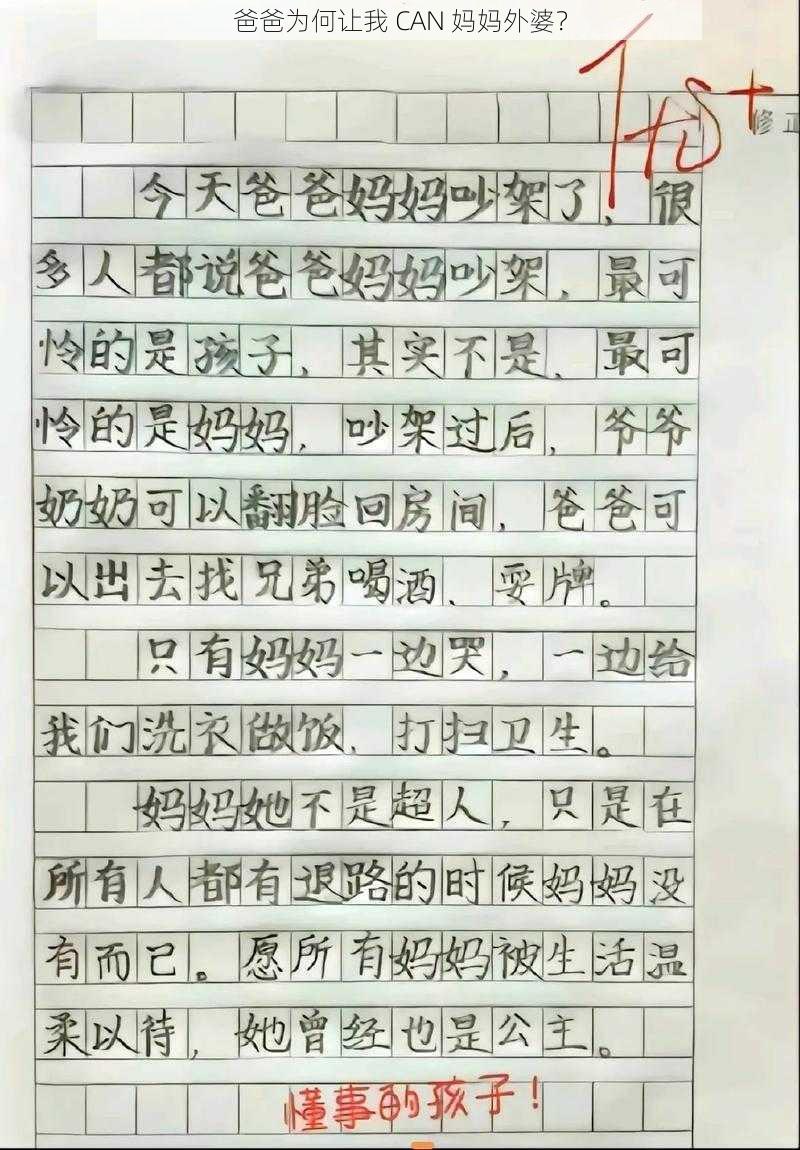 爸爸为何让我 CAN 妈妈外婆？
修正
今天爸爸妈妈吵架了，很
多人都说爸爸妈妈吵架，最可
怜的是孩子，其实不是，最可
怜的是妈妈，吵架过后，爷爷
奶奶可以翻脸回房间，爸爸可
以出去找兄弟喝酒、耍牌。
只有妈妈一边哭，一边给
我们洗衣做饭，打扫卫生。
妈妈她不是超人，只是在
所有人都有退路的时候妈妈没
有而已。愿所有妈妈被生活温
柔以待，她曾经也是公主。
懂事的孩子！